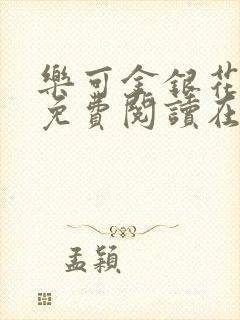 樂可金銀花
免費閱讀在
孟穎